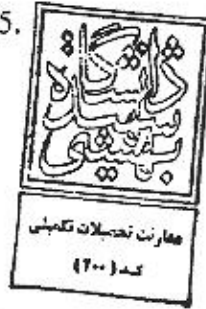 5.
دانشگاه
شهید
بهشتی
معاونت تحصیلات تکمیلی
کد (۲۰۰)